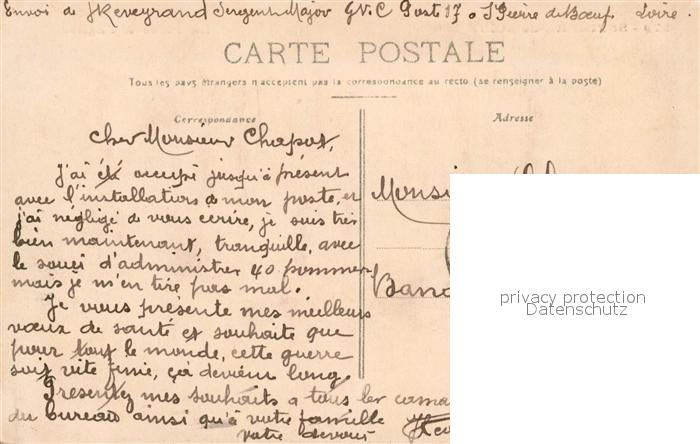 Envoi de Reveyrand Sergent Major G.V.C Post 17 o St Pierre de Bœuf Loire.
CARTE POSTALE
Tous les pays étrangers n'acceptent pas la correspondance au recto (se renseigner à la poste)
Correspondance
Adresse
Cher Monsieur Chapot,
J'ai été occupé jusqu'à présent
avec l'installation de mon poste, et
j'ai négligé de vous écrire, je suis très
bien maintenant, tranquille, avec
le souci d'administrer 40 hommes
mais je m'en tire pas mal.
Je vous présente mes meilleurs
vœux de santé et souhaite que
pour tout le monde, cette guerre
soit vite finie, ça devient long.
Présentez mes souhaits a tous les cama
du bureau ainsi qu'à votre famille
votre dévoué
Monsi
Banq
privacy protection
Datenschutz